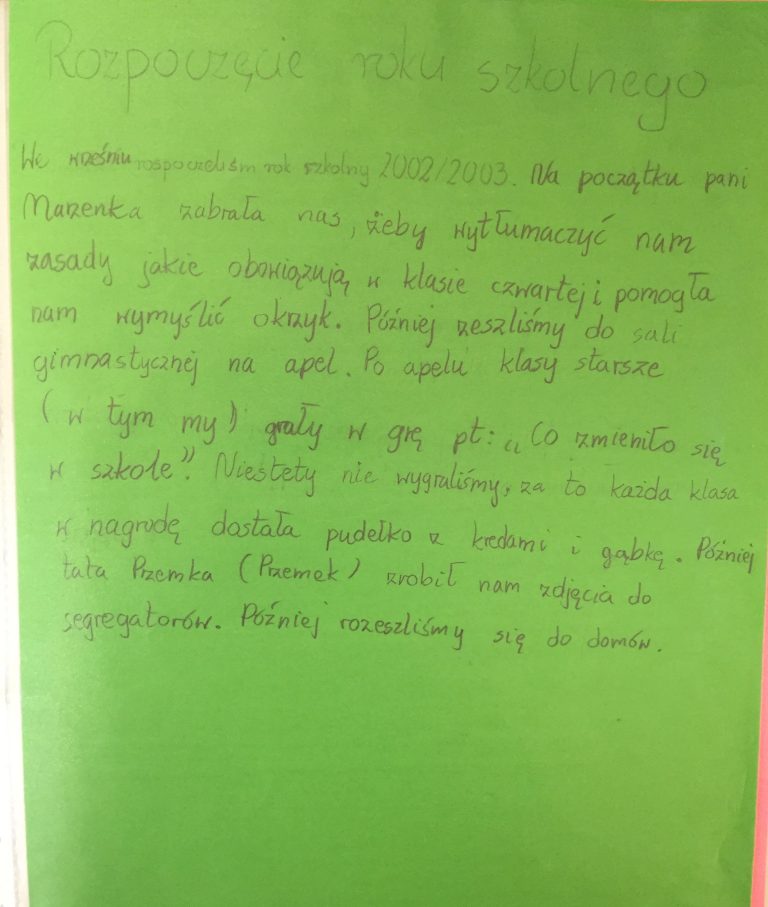 Rozpoczęcie roku szkolnego
We wrześniu rospoczeliśm rok szkolny 2002/2003. Na początku pani
Marzenka zabrała nas, żeby wytłumaczyć nam
zasady jakie obowiązują w klasie czwartej i pomogła
nam wymyślić okrzyk. Później zeszliśmy do sali
gimnastycznej na apel. Po apelu klasy starsze
(w tym my) grały w grę pt: „Co zmieniło się
w szkole". Niestety nie wygraliśmy, za to każda klasa
w nagrodę dostała pudełko z kredami i gąbkę. Później
tata Przemka (Przemek) zrobił nam zdjęcia do
segregatorów. Później rozeszliśmy się do domów.